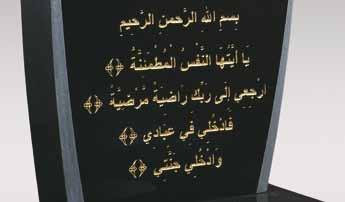 بِسْمِ اللهِ الرَّحْمنِ الرَّحِيمِ
يَا أَيَّتُهَا النَّفْسُ الْمُطْمَئِنَّةُ ﴿﴾
ارْجِعِي إِلَى رَبِّكِ رَاضِيَةً مَّرْضِيَّةً ﴿﴾
فَادْخُلِي فِي عِبَادِي ﴿﴾
وَادْخُلِي جَنَّتِي ﴿﴾